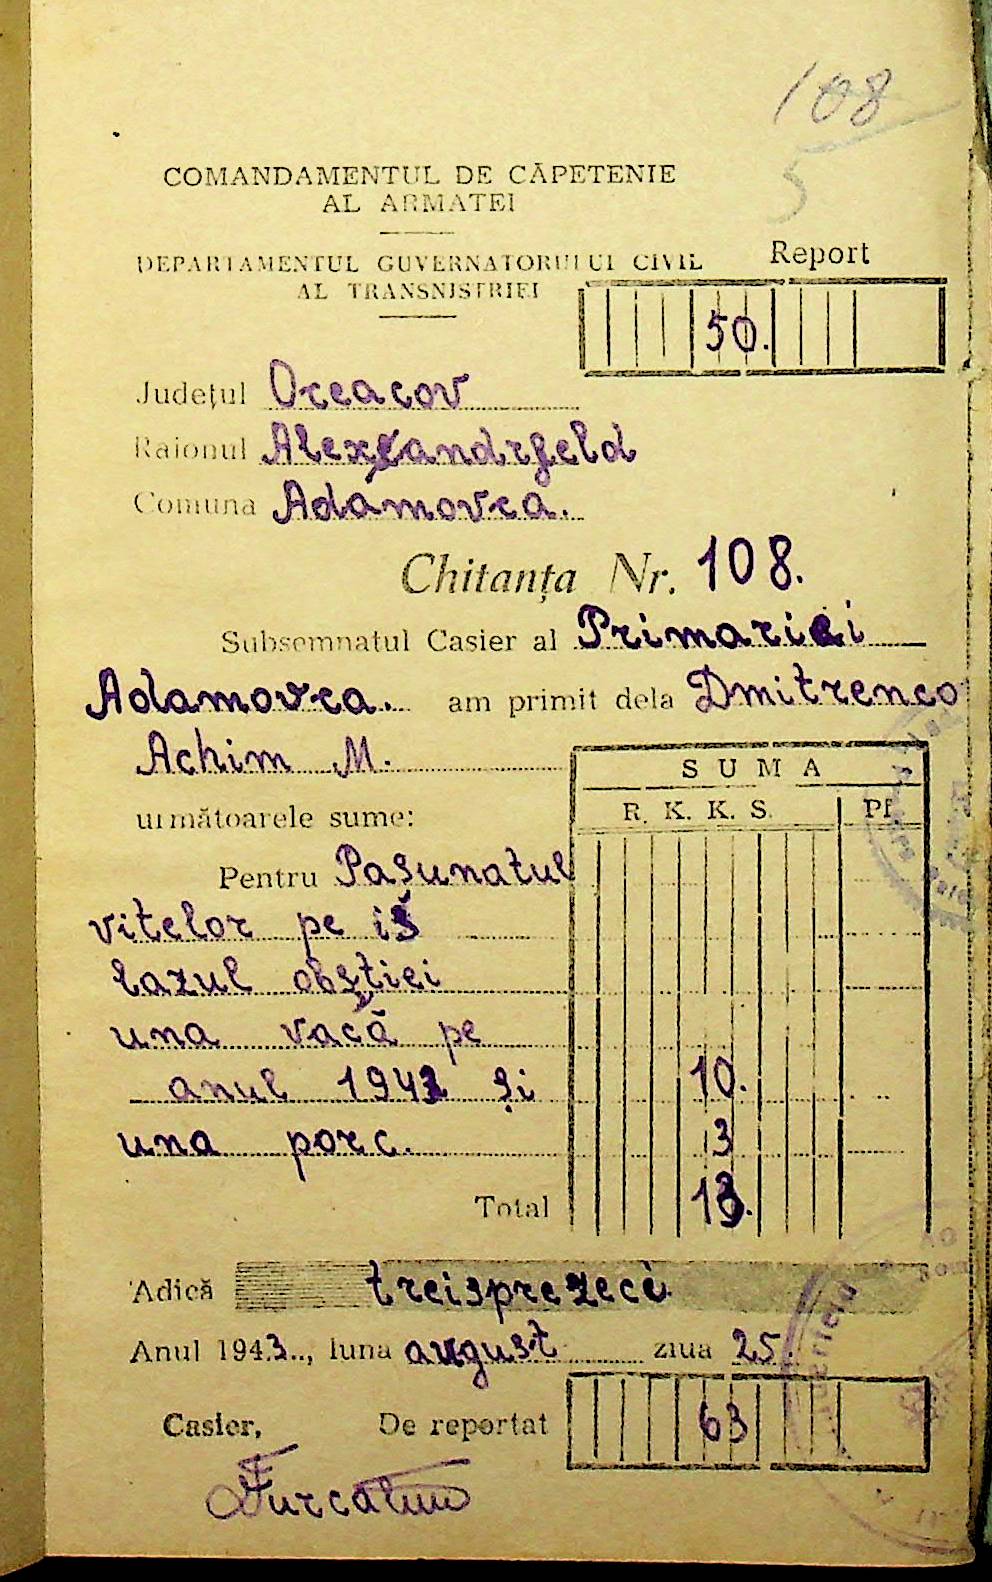 108
5
COMANDAMENTUL DE CĂPETENIE
AL ARMATEI
DEPARTAMENTUL GUVERNATORULUI CIVIL
AL TRANSNISTRIEI
Report
50.
Județul Oceacov
Raionul Alexandrfeld
Comuna Adamovca.
Chitanța Nr. 108.
Subsemnatul Casier al Primariei
Adamovca. am primit dela Dmitrenco
Achim M.
SUMA
următoarele sume:
R. K. K. S. Pf.
Pentru Pașunatul
vitelor pe is
lazul obștiei
una vacă pe
anul 1943 și 10.
una porc. 3
Total 13.
Adică treisprezece
Anul 1943., luna august ziua 25.
Casier, De reportat 63